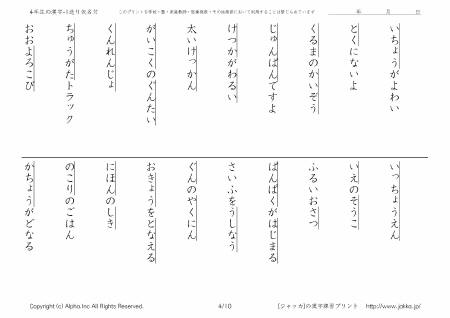 4年生の漢字+1送り仮名付
このプリントを学校・塾・家庭教師・医療機関・その他施設において利用することは禁じられています
年 月 日
いちょうがよわい
とくにないよ
くるまのかいぞう
じゅんばんですよ
けつかがわるい
太いけっかん
がいこくのぐんたい
くんれんじょ
ちゅうがたトラック
おおよろこび
いっちょうえん
いえのそうこ
ふるいおさつ
ばんぱくがはじまる
さいふをうしなう
ぐんのやくにん
おきょうをとなえる
にほんのしき
のこりのごはん
がちょうがどなる
Copyright (c) Alpha.Inc All Rights Reserved.
4/10
[ジャッカ]の漢字練習プリント http://www.jakka.jp/